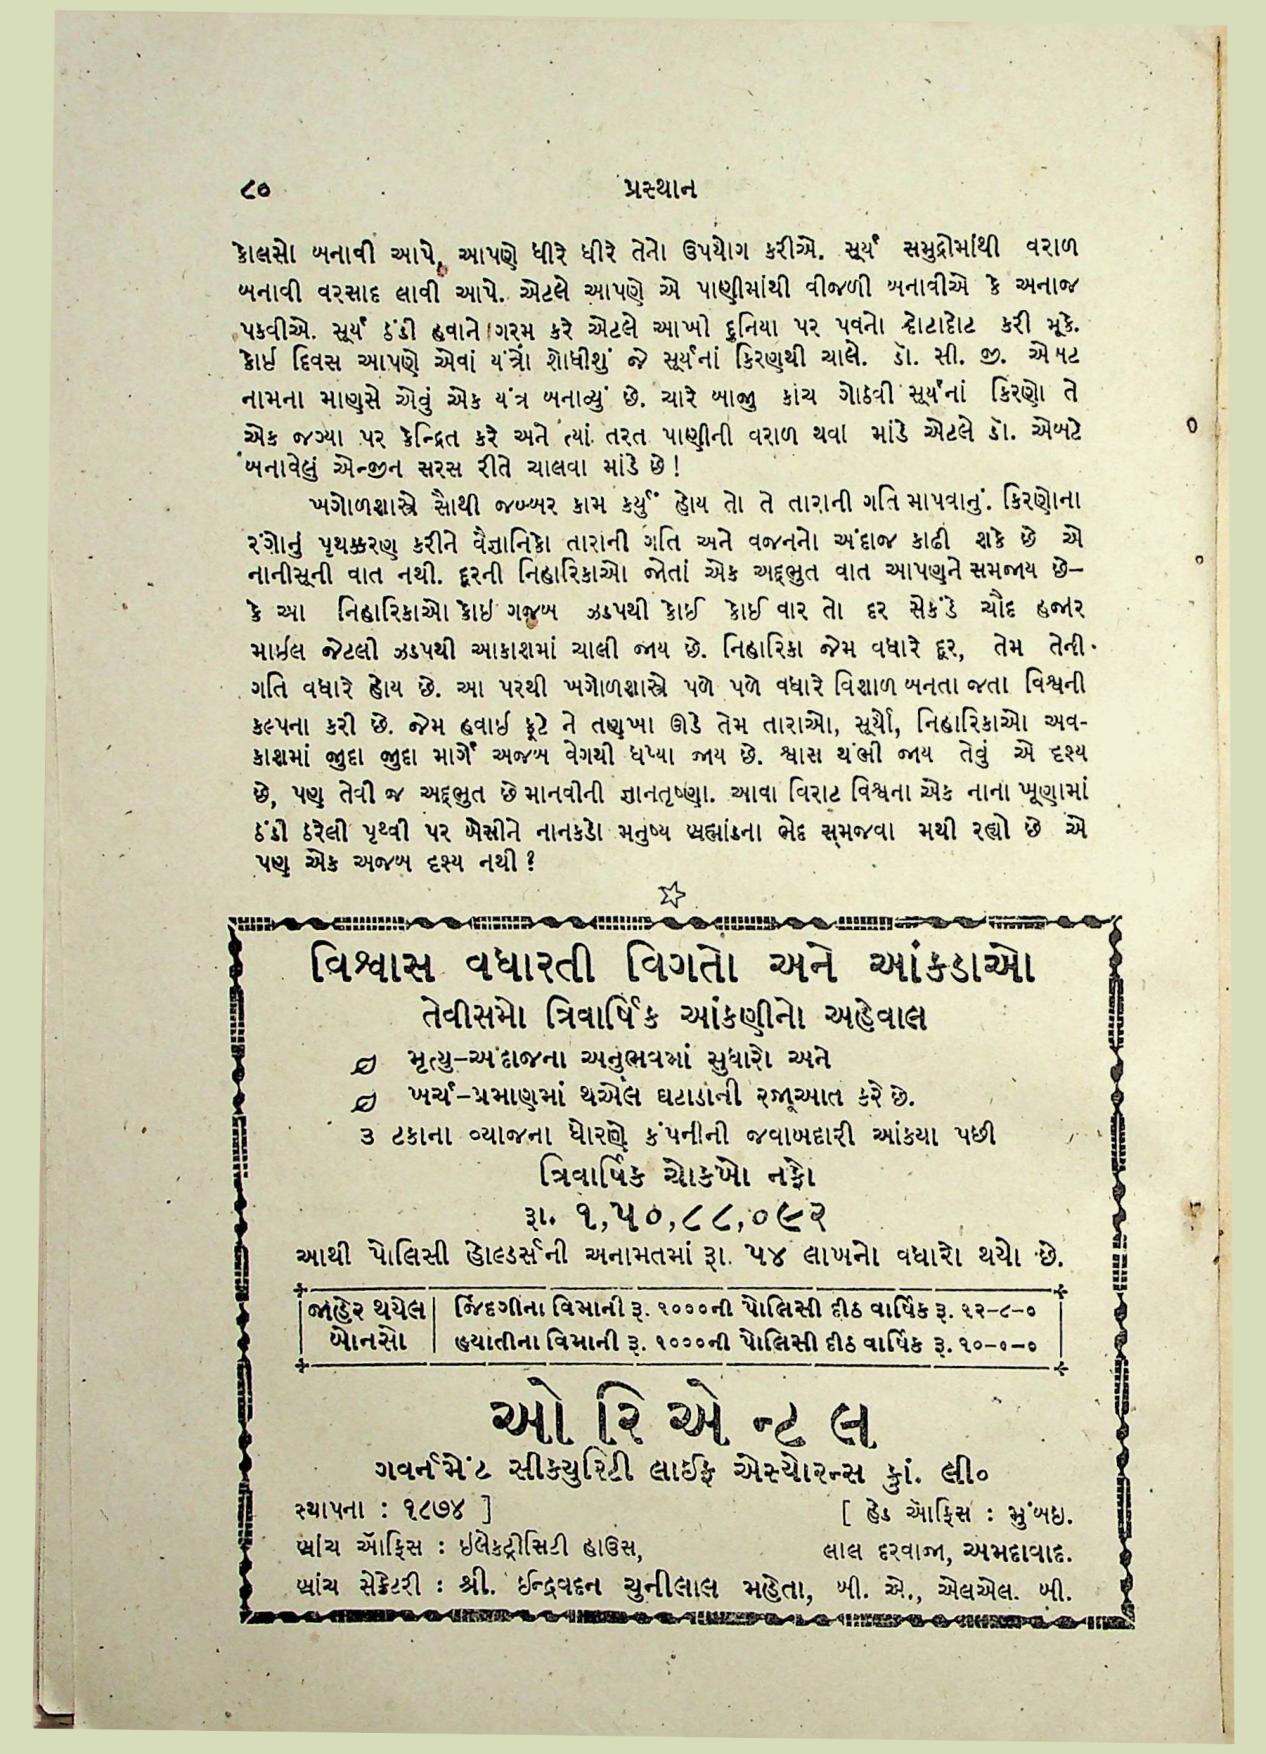 ૮૦ પ્રસ્થાન
કોલસો બનાવી આપે, આપણે ધીરે ધીરે તેનો ઉપયોગ કરીએ. સૂર્ય સમુદ્રોમાંથી વરાળ
બનાવી વરસાદ લાવી આપે. એટલે આપણે એ પાણીમાંથી વીજળી બનાવીએ કે અનાજ
પકવીએ. સૂર્ય ઠંડી હવાને ગરમ કરે એટલે આખી દુનિયા પર પવનો દોટાદોટ કરી મૂકે.
કોઈ દિવસ આપણે એવાં યંત્રો શોધીશું જે સૂર્યનાં કિરણથી ચાલે. ડૉ. સી. જી. એબટ
નામના માણસે એવું એક યંત્ર બનાવ્યું છે. ચારે બાજુ કાચ ગોઠવી સૂર્યનાં કિરણો તે
એક જગ્યા પર કેન્દ્રિત કરે અને ત્યાં તરત પાણીની વરાળ થવા માંડે એટલે ડૉ. એબટે
બનાવેલું એન્જીન સરસ રીતે ચાલવા માંડે છે!
ખગોળશાસ્ત્રે સૌથી જબ્બર કામ કર્યું હોય તો તે તારાની ગતિ માપવાનું. કિરણોના
રંગોનું પૃથક્કરણ કરીને વૈજ્ઞાનિકો તારાની ગતિ અને વજનનો અંદાજ કાઢી શકે છે એ
નાનીસૂની વાત નથી. દૂરની નિહારિકાઓ જોતાં એક અદ્ભુત વાત આપણને સમજાય છે–
કે આ નિહારિકાઓ કોઇ ગજબ ઝડપથી કોઈ કોઈ વાર તો દર સેકંડે ચૌદ હજાર
માઈલ જેટલી ઝડપથી આકાશમાં ચાલી જાય છે. નિહારિકા જેમ વધારે દૂર, તેમ તેની
ગતિ વધારે હોય છે. આ પરથી ખગોળશાસ્ત્રે પળે પળે વધારે વિશાળ બનતા જતા વિશ્વની
કલ્પના કરી છે. જેમ હવાઇ ફૂટે ને તણખા ઊડે તેમ તારાઓ, સૂર્યો, નિહારિકાઓ અવ-
કાશમાં જુદા જુદા માર્ગે અજબ વેગથી ધપ્યા જાય છે. શ્વાસ થંભી જાય તેવું એ દૃશ્ય
છે, પણ તેવી જ અદ્ભુત છે માનવીની જ્ઞાનતૃષ્ણા. આવા વિરાટ વિશ્વના એક નાના ખૂણામાં
ઠંડી ઠરેલી પૃથ્વી પર બેસીને નાનકડો મનુષ્ય બ્રહ્માંડના ભેદ સમજવા મથી રહ્યો છે એ
પણ એક અજબ દૃશ્ય નથી?
વિશ્વાસ વધારતી વિગતો અને આંકડાઓ
તેવીસમો ત્રિવાર્ષિક આંકણીનો અહેવાલ
મૃત્યુ–અંદાજના અનુભવમાં સુધારો અને
ખર્ચ–પ્રમાણમાં થએલ ઘટાડાની રજૂઆત કરે છે.
૩ ટકાના વ્યાજના ધોરણે કંપનીની જવાબદારી આંકયા પછી
ત્રિવાર્ષિક ચોકખો નફો
રૂા. ૧,૫૦,૮૮,૦૯૨
આથી પોલિસી હોલ્ડર્સની અનામતમાં રૂા. ૫૪ લાખનો વધારો થયો છે.
જાહેર થયેલ જિંદગીના વિમાની રૂ. ૧૦૦૦ની પોલિસી દીઠ વાર્ષિક રૂ. ૧૨-૮-૦
બોનસો હયાતીના વિમાની રૂ. ૧૦૦૦ની પોલિસી દીઠ વાર્ષિક રૂ. ૧૦-૦-૦
ઓ રિ એ ન્ટ લ
ગવર્નમેંટ સીક્યુરિટી લાઈફ એસ્યોરન્સ કું. લી૦
સ્થાપના : ૧૮૭૪ ] [ હેડ ઑફિસ : મુંબઇ.
બ્રાંચ ઑફિસ : ઇલેકટ્રીસિટી હાઉસ, લાલ દરવાજા, અમદાવાદ.
બ્રાંચ સેક્રેટરી : શ્રી. ઈન્દ્રવદન ચુનીલાલ મહેતા, બી. એ., એલએલ. બી.